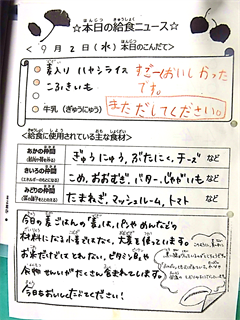 ☆本日の給食ニュース☆
＜9月2日(水)本日のこんだて＞
麦入り ハヤシライス
こふきいも
牛乳(ぎゅうにゅう)
すごーおいしかった
です。
まただしてください。
＜給食に使用されている主な食材＞
あかの仲間 ぎゅうにゅう、ぶたにく、チーズ など
きいろの仲間 こめ、おおむぎ、バター、じゃがいも など
みどりの仲間 たまねぎ、マッシュルーム、トマト など
今日の麦ごはんの「麦」は、パンやめんなどの
材料になる小麦ではなく、大麦を使っています。
お米だけでとれない、ビタミンB₁や
食物せんいがたくさん含まれています。
今日もおいしくたべてください！